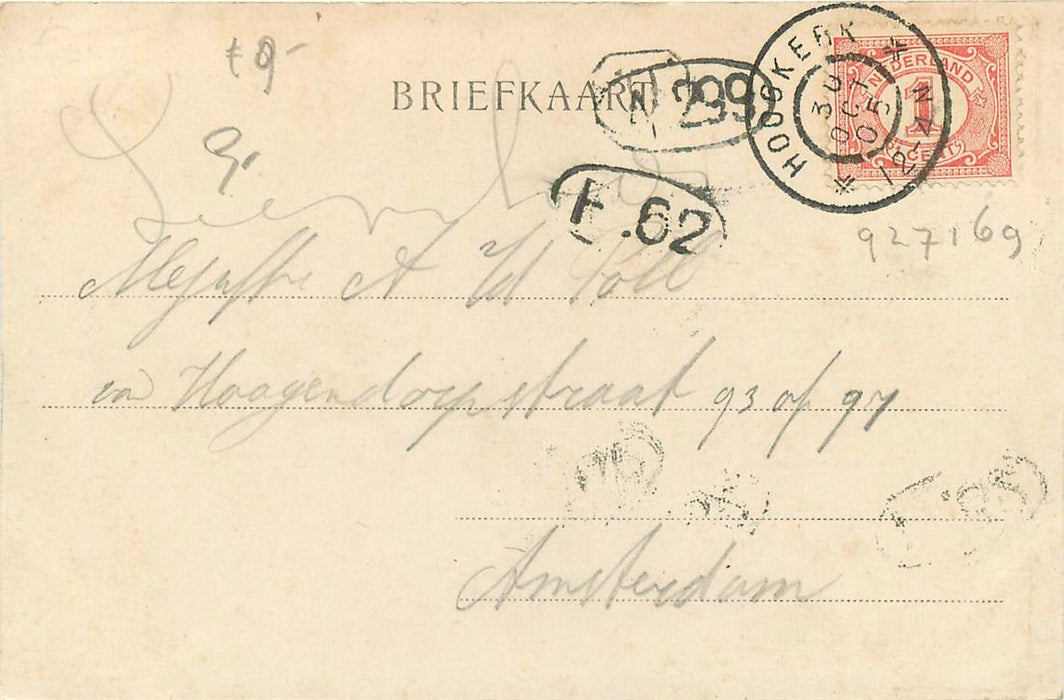 9,-
BRIEFKAART
N 299
HOOGKERK
30 OCT 05
12-4 N
NEDERLAND
1
CENT
9,
.62
927169
Mejuffr A
Hoogendorpstraat 93 of 97
Amsterdam